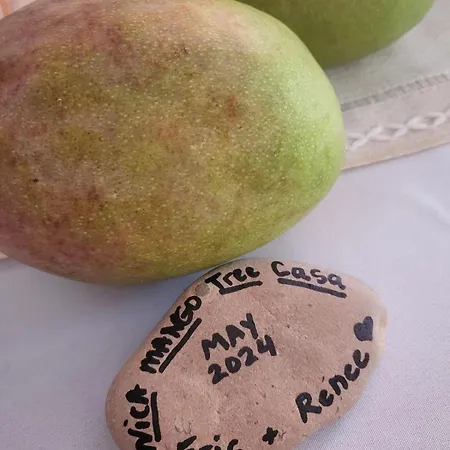 MANGO Tree Casa
MAY
2024
+ Renee